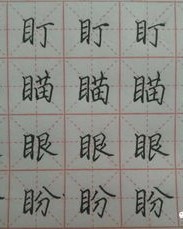 盯 盯 盯
瞄 瞄 瞄
眼 眼 眼
盼 盼 盼